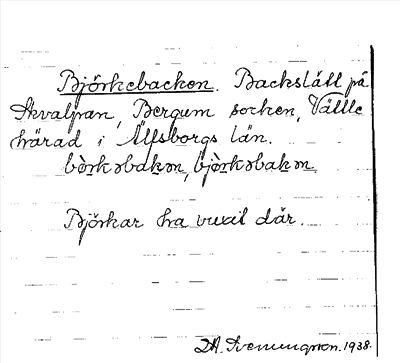 Björkebacken. Backslätt på
Skvalpan, Bergum socken, Vättle
härad i Älfsborgs län.
bö̀rkəbakən, bjö̀rkəbakən.
Björkar ha vuxit där.
1938.